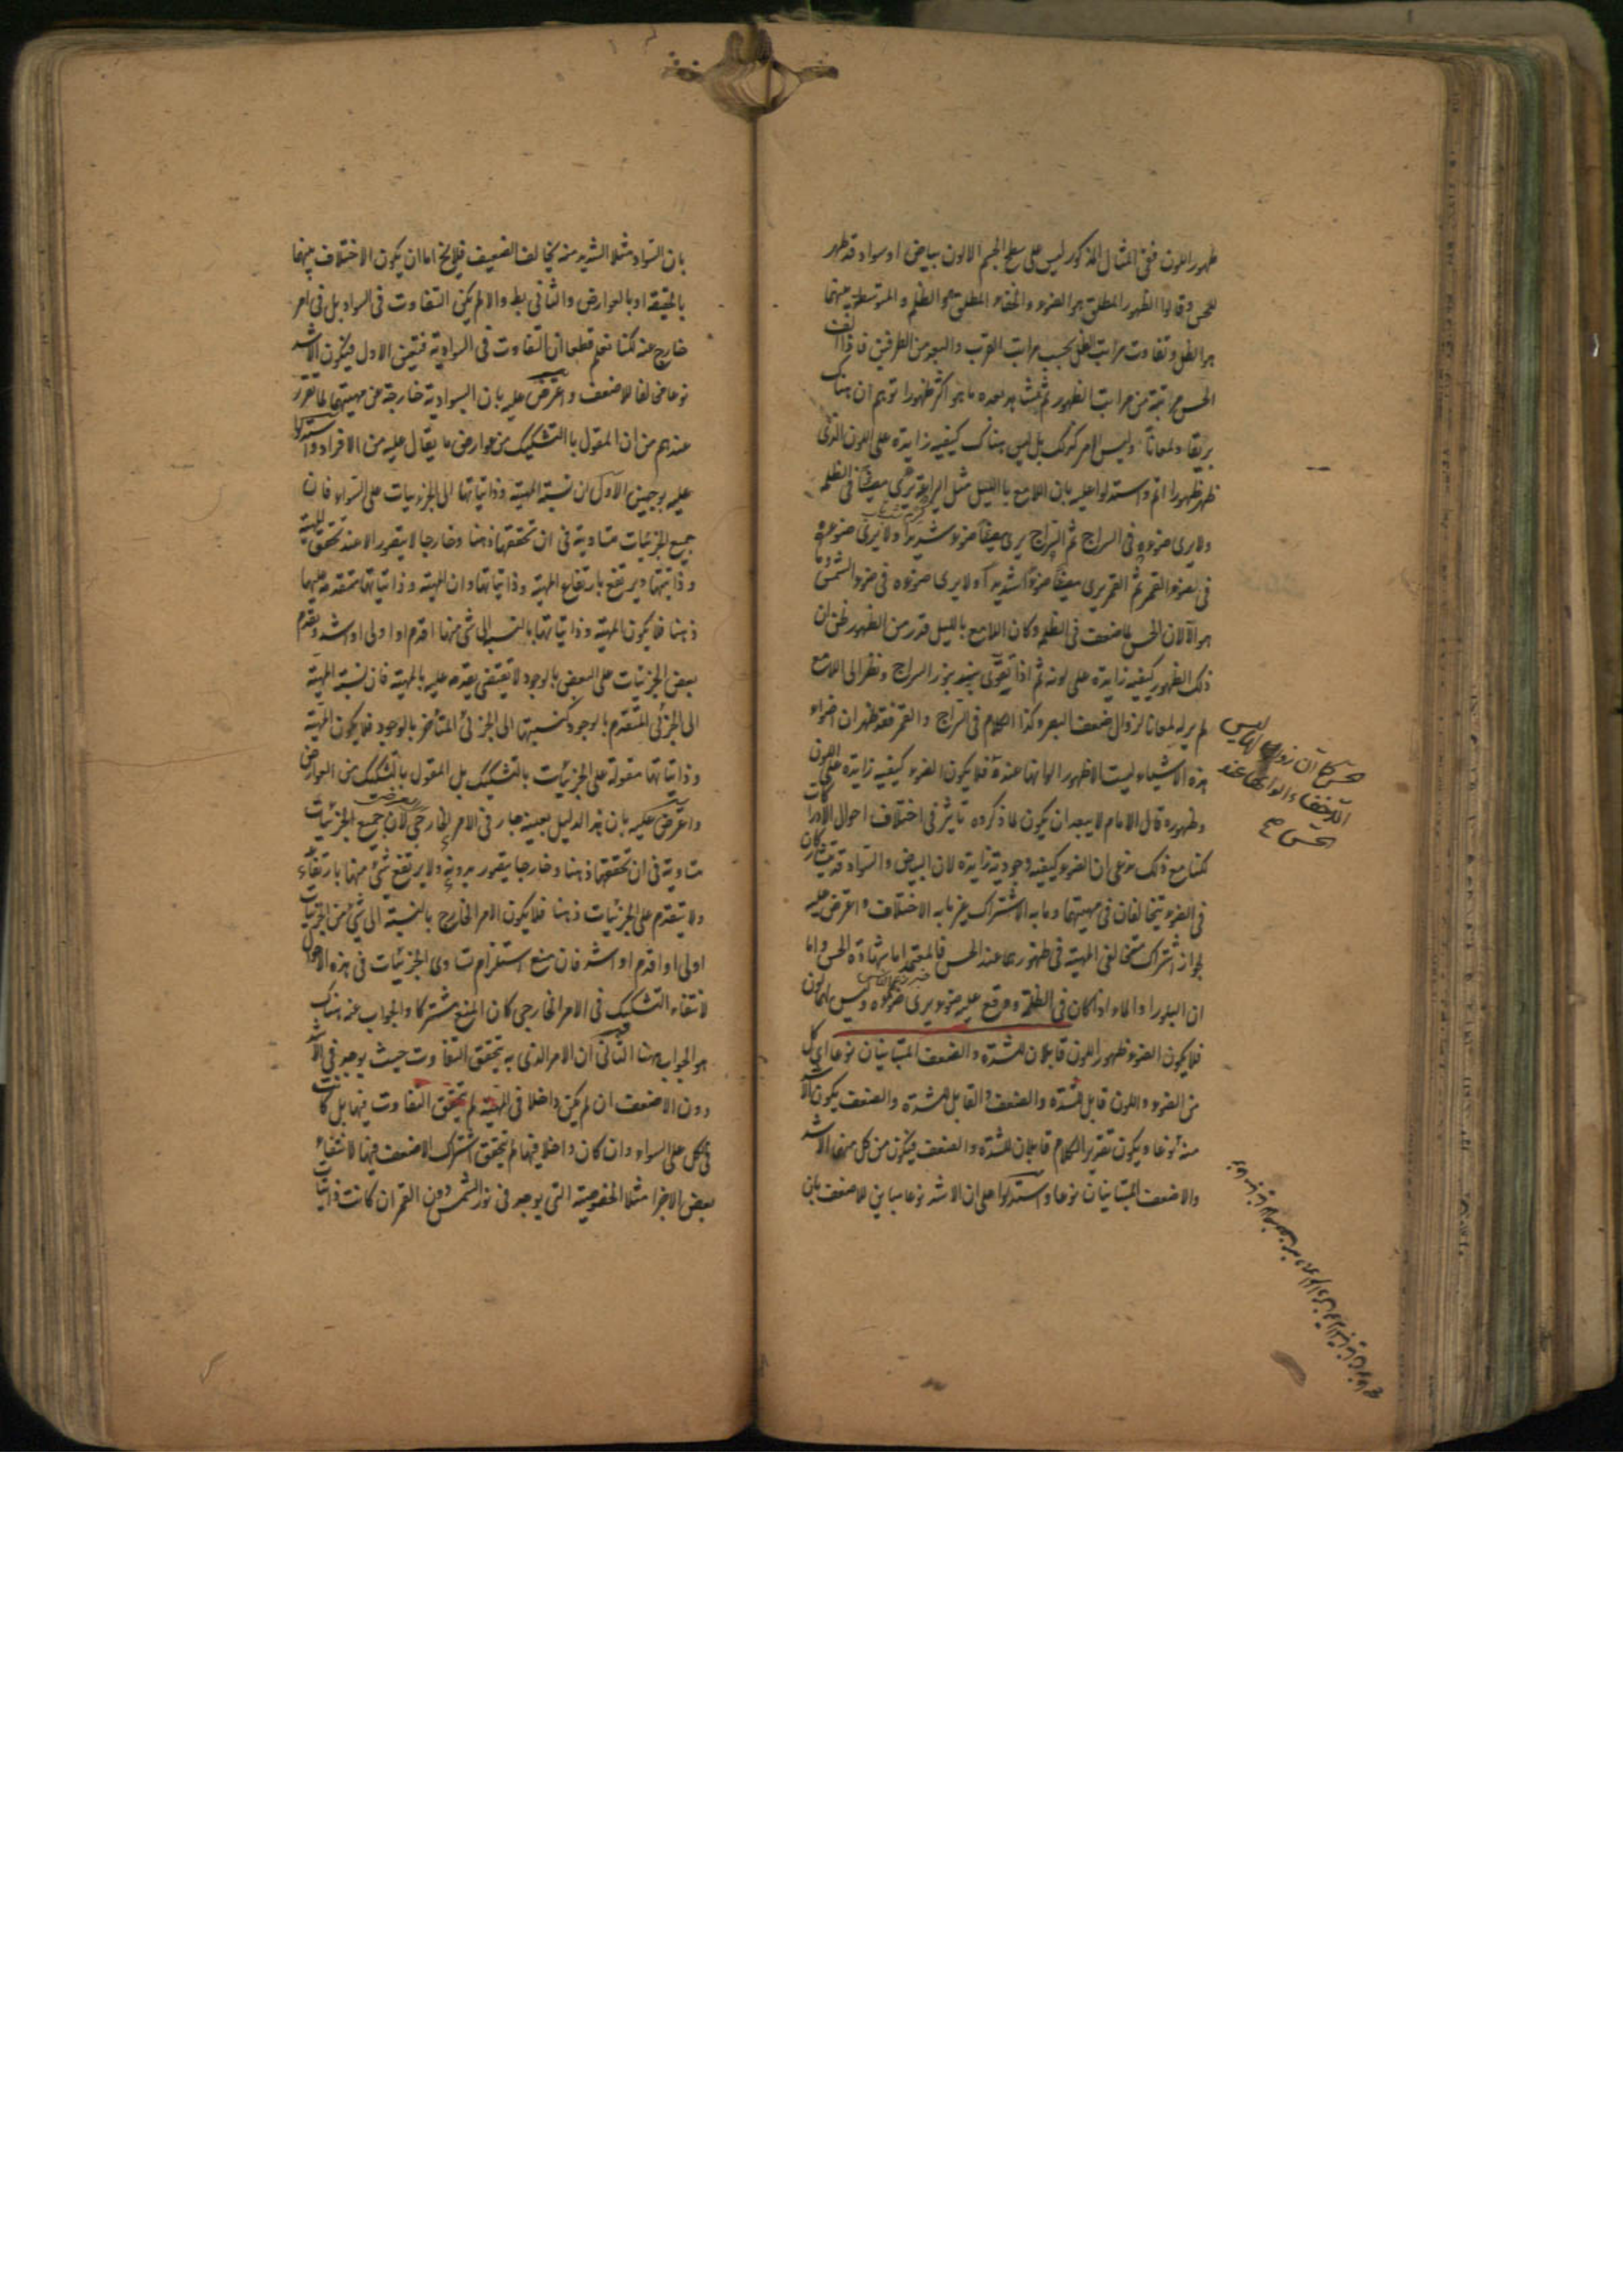 ظهور اللون ففى المثال المذكور ليس على سطح الجسم الا لون بياض او سواد قد ظهر
للحس وقالوا الظهور المطلق هو الضوء والخفاء المطلق هو الظلم والمتوسط بينهما
هو الظل وتفاوت مراتب الظل بحسب مراتب القرب والبعد من الطرفين فاذا الف
الحس مرتبة من مراتب الظهور ثم شاهد بعده ما هو اكثر ظهورا توهم ان هناك
بريقا ولمعانا وليس الامر كذلك بل ليس هناك كيفية زايدة على اللون الذى
ظهر ظهورا اتم واستدلوا عليه بان اللامع بالليل مثل اليراعة يرى مضيئا فى الظلمة
ولا يرى ضوءه فى السراج ثم السراج يرى مضيئا ضوءا شديدا ولا يرى ضوءه
فى ضوء القمر ثم القمر يرى مضيئا ضوءا شديدا ولا يرى ضوءه فى ضوء الشمس وما
هو الا لان الحس لما ضعف فى الظلمة وكان اللامع بالليل قدر من الظهور ظن ان
ذلك الظهور كيفية زايدة على لونه ثم اذا تقوى بنور السراج ونظر الى اللامع
لم ير له لمعانا لزوال ضعف البصر وكذا الكلام فى السراج والقمر فقد ظهر ان اضواء
هذه الاشياء ليست الا ظهور الوانها عنده فلا يكون الضوء كيفية زايدة على اللون
وظهوره قال الامام لا يبعد ان يكون لما ذكروه تاثير فى اختلاف احوال الادراكات
لكنا مع ذلك ندعى ان الضوء كيفية وجودية زايدة لان البياض والسواد قد يتشاركان
فى الضوء ويتخالفان فى مهيتهما وما به الاشتراك غير ما به الاختلاف واعترض عليه
لجواز اشتراك متخالفى المهية فى ظهورهما عند الحس فالمعتمد اما شهادة الحس واما
ان البلور او الماء اذا كان فى الظلمة ووقع عليه ضوء يرى ضوءه وليس له لون
فلا يكون الضوء ظهور اللون قابلان للشدة والضعف المتباينان نوعا اى كل
من الضوء واللون قابل للشدة والضعف والقابل للشدة والضعف يكون الاشد
منه نوعا ويكون تقدير الكلام قابلان للشدة والضعف فيكون من كل منهما الاشد
والاضعف المتباينان نوعا واستدلوا على ان الاشد نوعا مباين للاضعف بان
الحس كان زوال
لخفاء الوانها عند
الحس صح
بان السواد مثلا الشديد منه يخالف الضعيف فلا يخ اما ان يكون الاختلاف بينهما
بالحقيقة او بالعوارض والثانى بط والا لم يكن التفاوت فى السواد بل فى امر
خارج عنه لكنا نعلم قطعا ان التفاوت فى السوادية فتعين الاول فيكون الاشد
نوعا مخالفا للاضعف واعترض عليه بان السوادية خارجة عن مهيتهما لما تقرر
عندهم من ان المقول بالتشكيك من عوارض ما يقال عليه من الافراد واستدلوا
عليه بوجهين الاول ان نسبة المهية وذاتياتها الى الجزئيات على السواء فان
جميع الجزئيات متساوية فى ان تحققها ذهنا وخارجا لا يتقرر الا عند تحقق المهية
وذاتيتها ويرتفع بارتفاع المهية وذاتياتها وان المهية وذاتياتها متقدمة عليها
ذهنا فلا يكون المهية وذاتياتها بالنسبة الى شئ منها اقدم او اولى او اشد وتقدم
بعض الجزئيات على البعض بالوجود لا يقتضى تقدمه عليه بالمهية فان نسبة المهية
الى الجزئى المتقدم بالوجود كنسبتها الى الجزئى المتأخر بالوجود فلا يكون المهية
وذاتياتها مقولة على الجزئيات بالتشكيك بل المقول بالتشكيك من العوارض
واعترض عليه بان هذا الدليل بعينه جار فى الامر الخارجى لان جميع الجزئيات
متساوية فى ان تحققها ذهنا وخارجا يتقرر بدونه ولا يرتفع شئ منها بارتفاعه
ولا يتقدم على الجزئيات ذهنا فلا يكون الامر الخارج بالنسبة الى شئ من الجزئيات
اولى او اقدم او اشد فان منع استلزام تساوى الجزئيات فى هذه الاحوال
لانتفاء التشكيك فى الامر الخارجى كان المنع مشتركا والجواب عنه هناك
هو الجواب هنا الثانى ان الامر الذى به يتحقق التفاوت حيث يوجد فى الاشد
دون الاضعف ان لم يكن داخلا فى المهية لم يتحقق التفاوت فيها بل كانت
فى الكل على السواء وان كان داخلا فيها لم يتحقق اشتراك الاضعف فيها لانتفاء
بعض الاجزاء مثلا الخصوصية التى يوجد فى نور الشمس دون القمر ان كانت ذاتيات